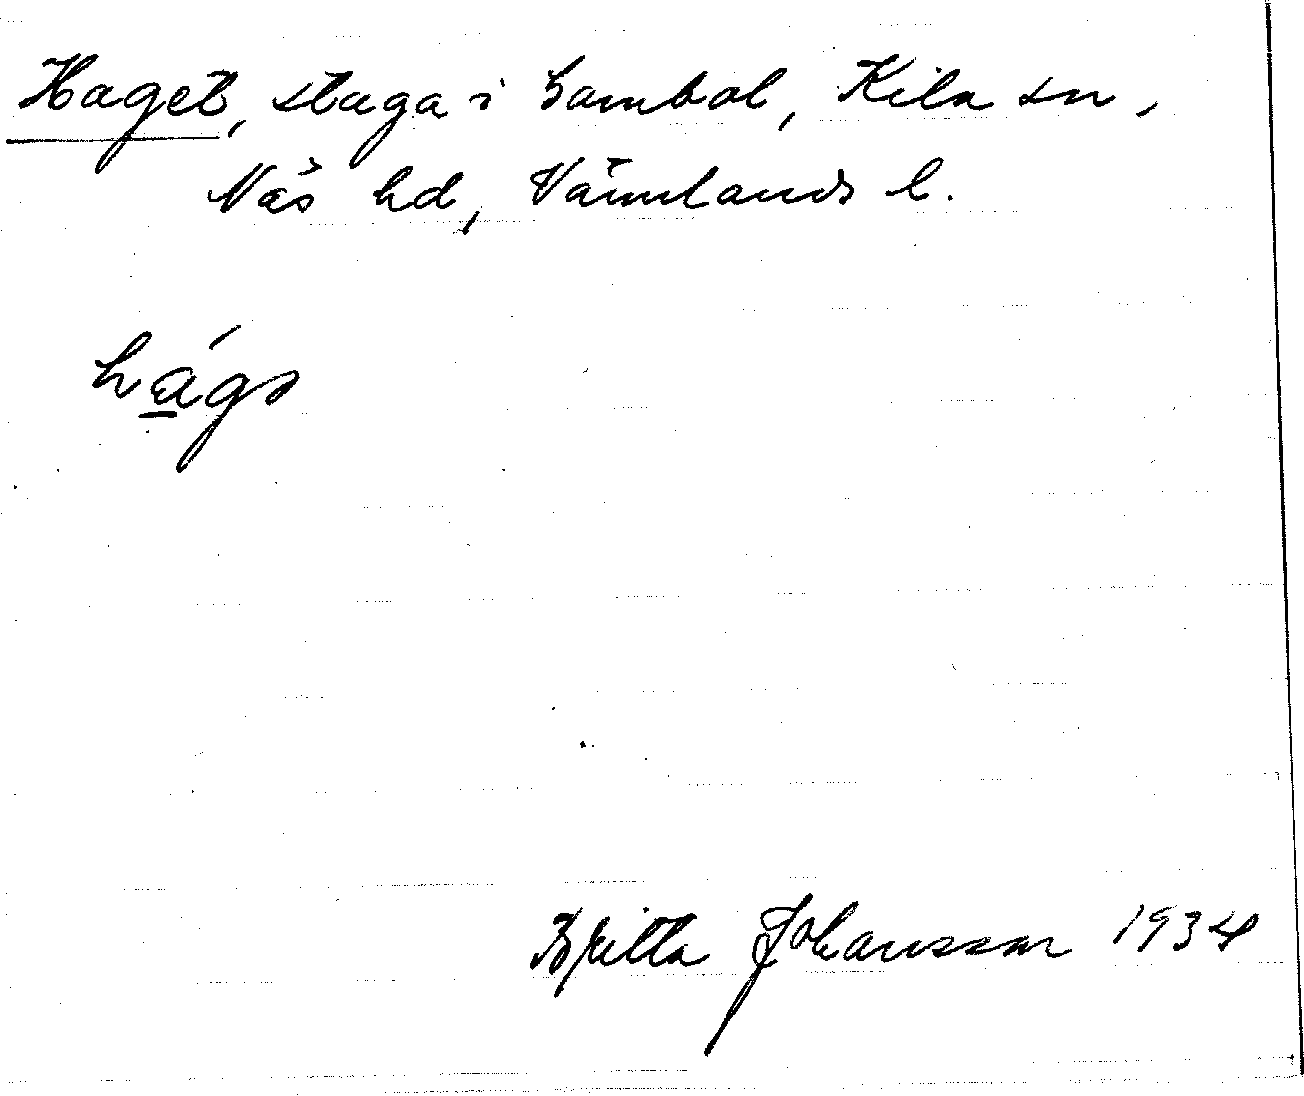 Haget, stuga i Sambol, Kila sn,
Näs hd, Värmlands l.
Britta Johansson 1934